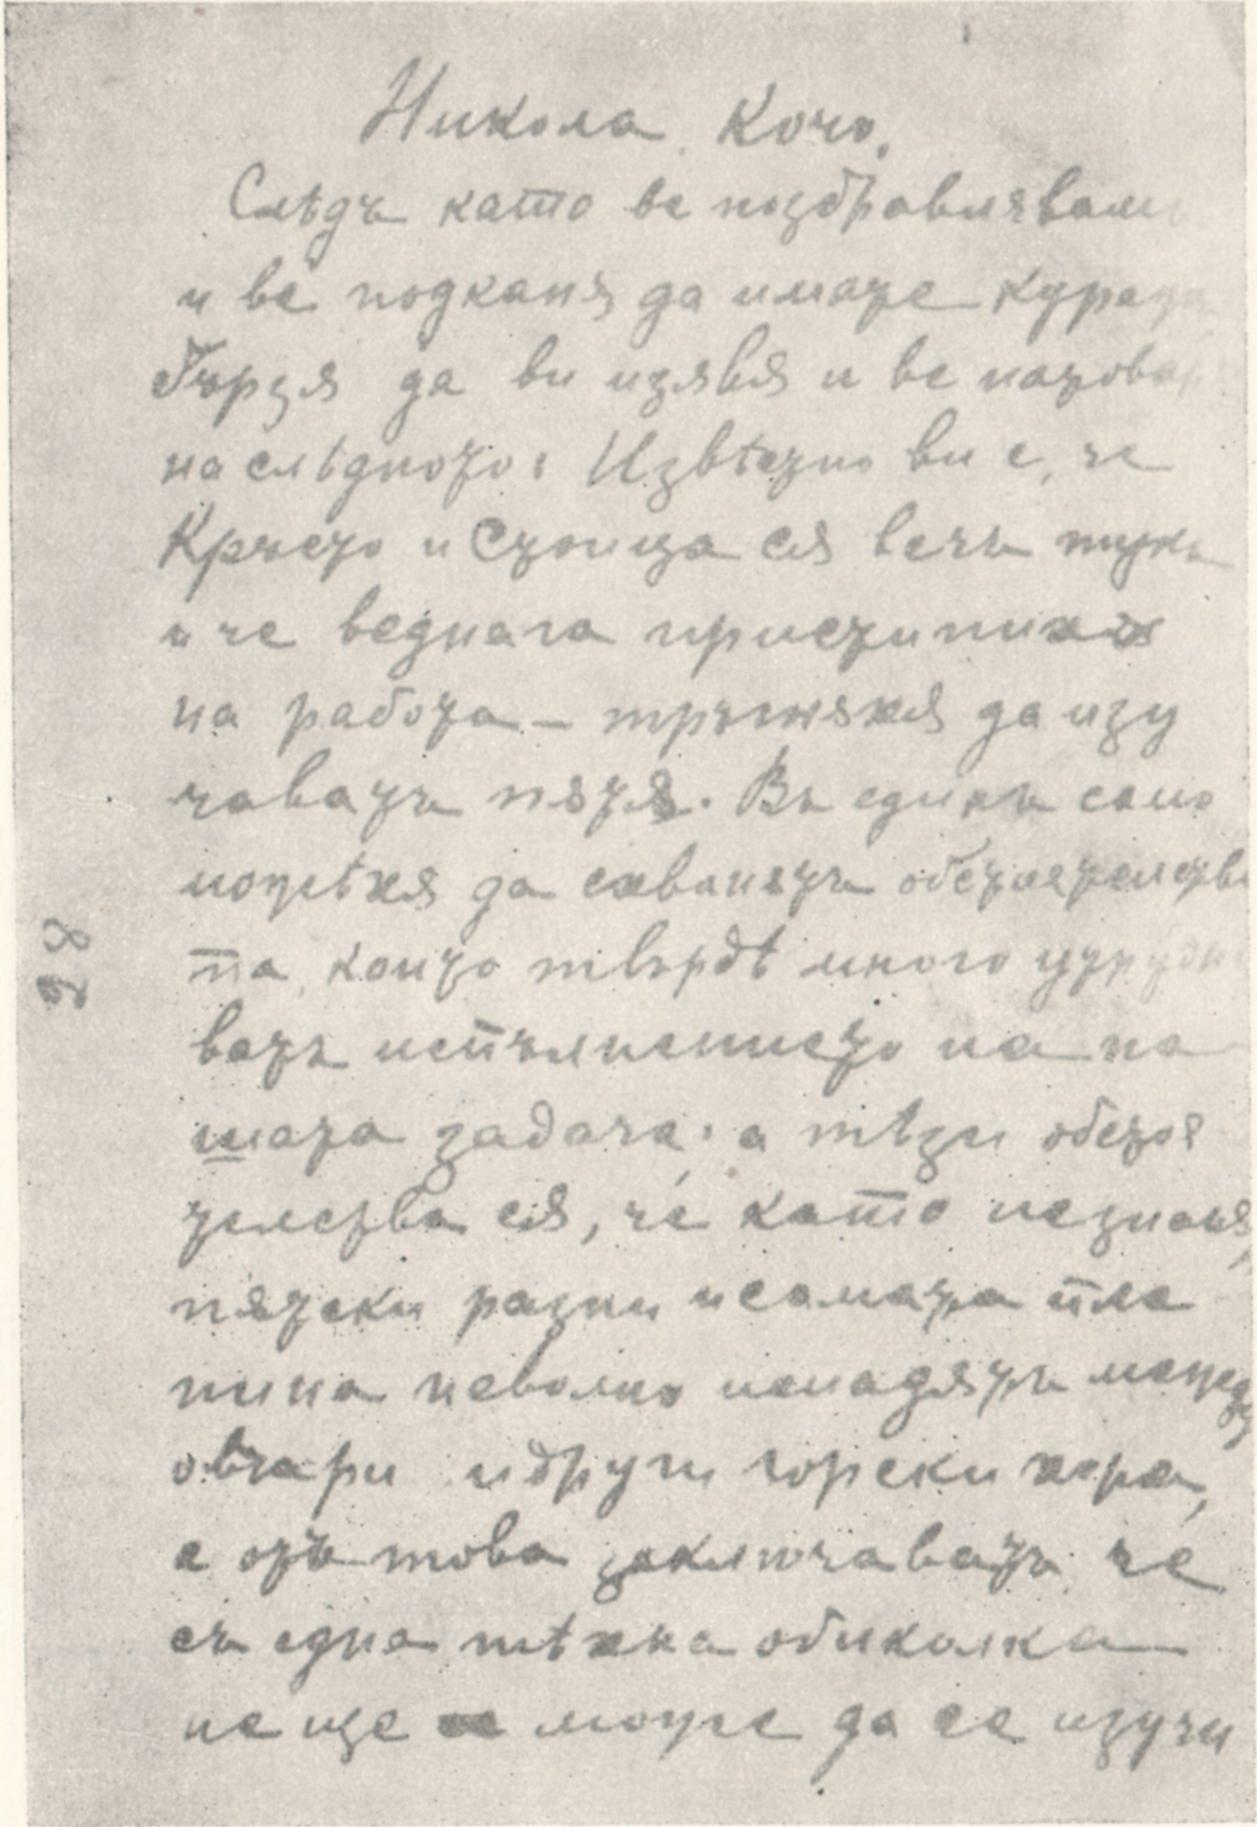 Никола, Кочо,
Слѣдъ като ве поздравлявамъ
и ве подканѭ да имате
бързѫ да ви изявѭ и ве
на слѣдното: Извѣстно ви е, че
Кръсто и Стоица сѫ вечь тукъ
и че веднага пристѫпихѫ
на работа – тръгнѫхѫ да изу
чаватъ пѫтя. Въ единъ само
можѣхѫ да схванѫтъ обстоятелства
та, които твърдѣ много
ватъ испълнението на на
шата задача: а тѣзи обстоя
телства сѫ, че като незнаѭ
пѫтеки разни исамата пла
нина неволно ненадятъ между
овчари идруги горски хора,
а отъ това заключаватъ, че
съ една тѣхна обиколка
не ще може да се изучи
28